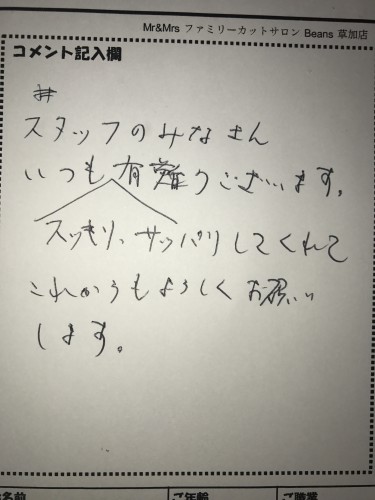 Mr&Mrs ファミリーカットサロン Beans 草加店
コメント記入欄
#
スタッフのみなさん
いつも有難うございます。
スッキリ、サッパリしてくれて
これからもよろしくお願い
します。
名前
ご年齢
ご職業